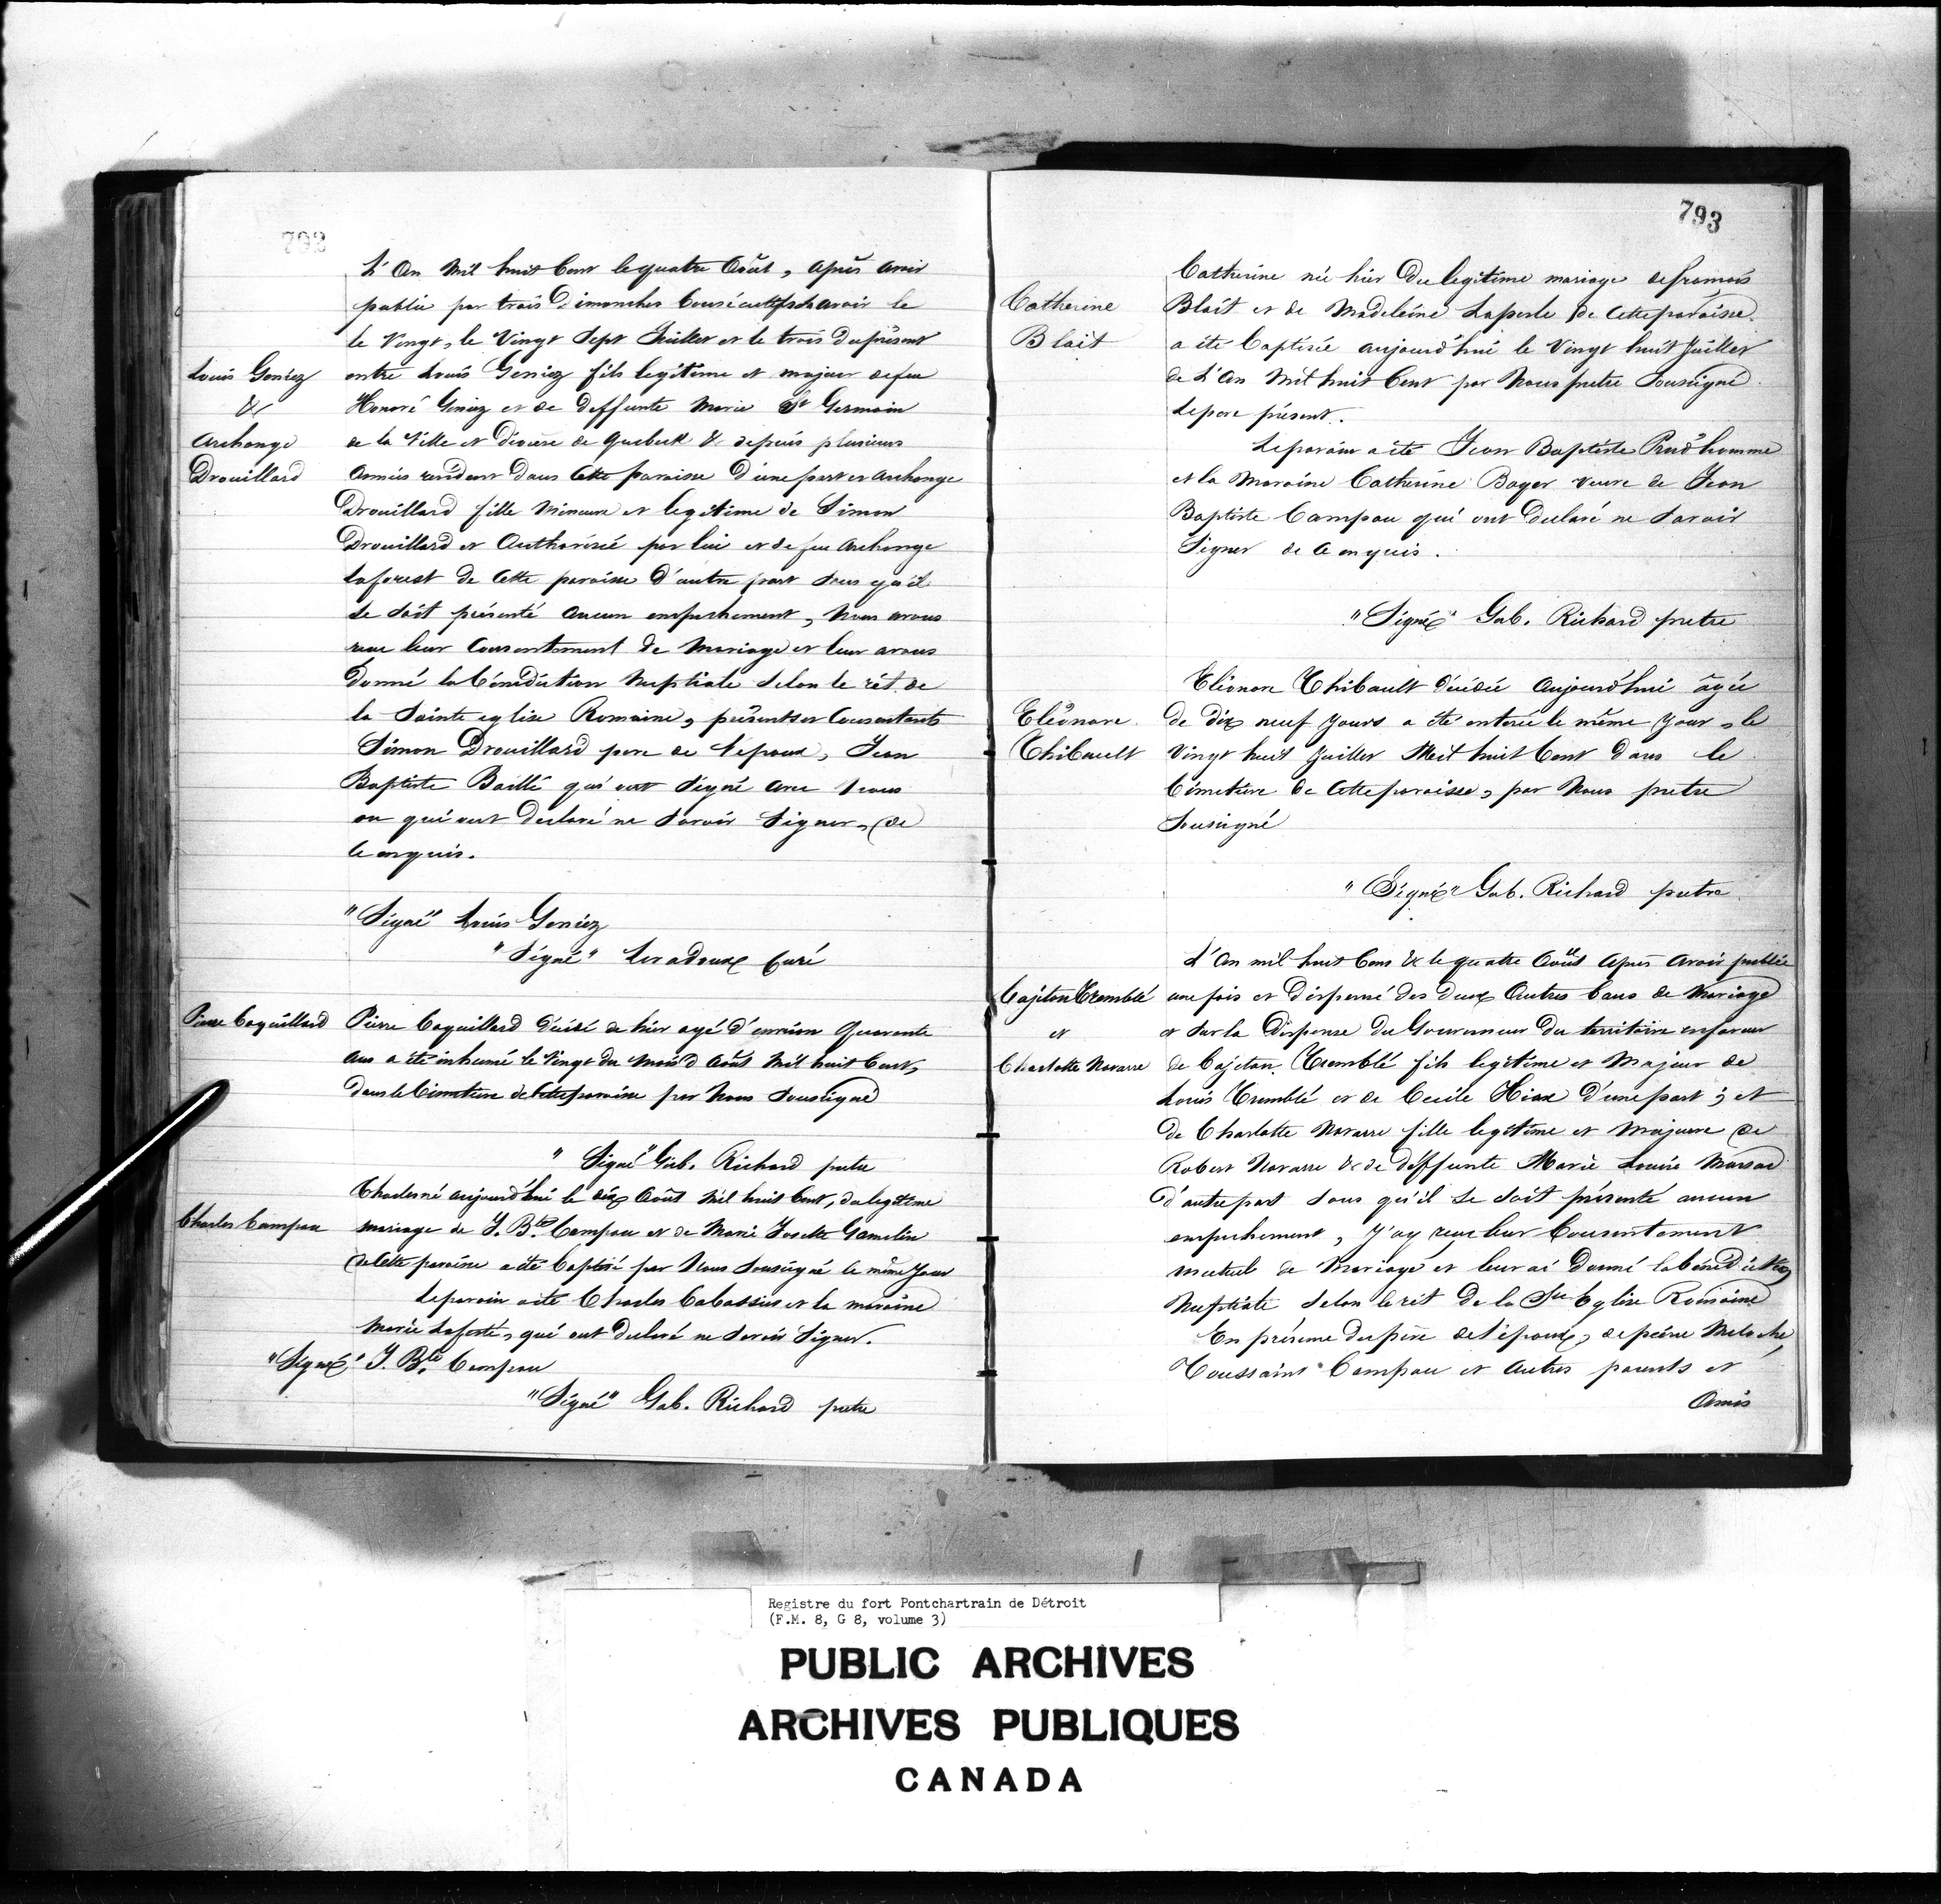 793
L'An Mil huit Cent le quatre Août, après avoir
publié par trois Dimanches Consécutifs savoir le
le Vingt, le Vingt Sept Juillet et le trois du présent
Louis Geniez
&
Archange
Drouillard
entre Louis Geniez fils legitime et majeur de feu
Honoré Geniez et de deffunte Marie St Germain
de la Ville et diocese de Quebeck & depuis plusieurs
années residant dans Cette paroisse D'une part et Archange
Drouillard fille Mineure et legitime de Simon
Drouillard et Authorisée par lui et de feu Archange
Laforest de Cette paroisse d'autre part sans qu'il
se soit présenté aucun empechement, Nous avons
recu leur Consentement de Mariage et leur avons
Donné la bénédiction Nuptiale selon le rit de
la Sainte eglise Romaine, présents et Consentants
Simon Drouillard pere de l'epouse, Jean
Baptiste Baillé qui ont signé avec Nous
ou qui ont declaré ne savoir signer, de
ce enquis.
"Signé" Louis Geniez
"Signé" Levadoux Curé
Pierre Coquillard
Pierre Coquillard décédé de hier agé d'environ Quarante
ans a été inhumé le Vingt du Mois d Août Mil huit Cent,
dans le Cimetiere de Cette paroisse par Nous Soussigné
"Signé" Gab. Richard pretre
Charles né aujourd'hui le dix Août Mil huit Cent, du legitime
Charles Campau
mariage de J. Bte Campau et de Marie Josette Gamelin
de Cette paroisse a été baptisé par Nous Soussigné le même Jour
Le parain a ete Charles Cabassier et la maraine
Marie Laferté, qui ont declaré ne savoir signer.
"Signé" J. Bte Campau
"Signé" Gab. Richard pretre
793
Catherine
Blait
Catherine née hier Du legitime mariage de francois
Blait et de Madeleine Laperle de Cette paroisse
a ete baptisée aujourd'hui le Vingt huit Juillet
de L'An Mil huit Cent par Nous pretre Soussigné.
Le pere présent.
Le parain a ete Jean Baptiste Prud'homme
et la Maraine Catherine Boyer veuve de Jean
Baptiste Campau qui ont Declaré ne Savoir
Signer de ce enquis.
"Signé" Gab. Richard pretre
Eléonore
Thibault
Eléonore Thibault décédée Aujourd'hui âgée
de dix neuf Jours a été enterée le même Jour, le
Vingt huit Juillet Mil huit Cent dans le
Cimetiere de Cette paroisse, par Nous pretre
Soussigné
"Signé" Gab. Richard pretre
Cajetan Tremblé
et
Charlotte Navarre
L'An mil huit Cens & le quatre Août Apres Avoir publié
une fois et Dispensé des deux Autres bans de Mariage
et sur la Dispense du Gouverneur du territoire en faveur
de Cajetan Tremblé fils legitime et Majeur de
Louis Tremblé et de Cecile D'une part ; et
de Charlotte Navarre fille legitime et Majeure de
Robert Navarre & de Déffunte Marie Louise Marsac
d'autre part sans qu'il se soit présenté aucun
empechement, J'ay recu leur Consentement
mutuel de Mariage et leur ai Donné la bénédiction
Nuptiale Selon le rit de la Ste Eglise Romaine
En présence du père de l'époux, de Meloche,
Toussaint Campau et Autres parents et
Amis
Registre du fort Pontchartrain de Détroit
(F.M. 8, G 8, volume 3)
PUBLIC ARCHIVES
ARCHIVES PUBLIQUES
CANADA